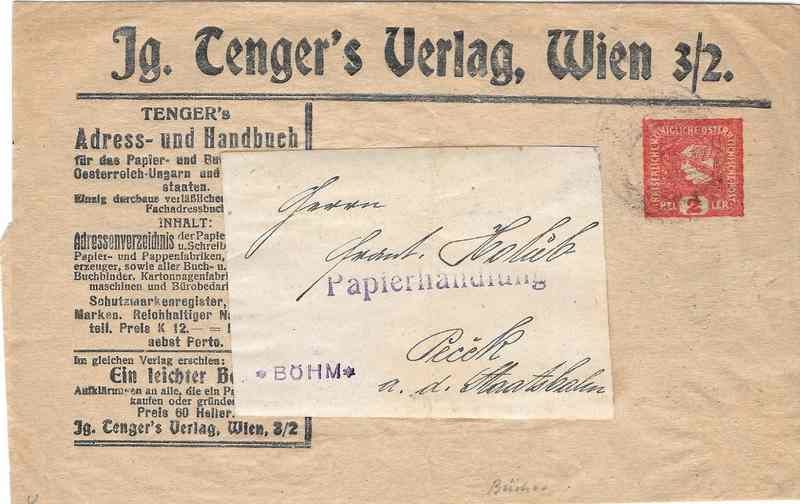 Jg. Tenger's Verlag, Wien 3/2.
TENGER's
Adress- und Handbuch
für das Papier- und Bu
Oesterreich-Ungarn und
staaten.
Einzig durchaus verläßliches
Fachadressbuch
INHALT:
Adressenverzeichnis der Papie
u. Schreib
Papier- und Pappenfabriken,
erzeuger, sowie aller Buch- u.
Buchbinder, Kartonnagenfabri
maschinen und Bürobedar
Schutzmarkenregister,
Marken. Reichhaltiger N
teil. Preis K 12.— =
nebst Porto.
Im gleichen Verlag erschien:
Ein leichter Be
Aufklärungen an alle, die ein Pa
kaufen oder gründe
Preis 60 Heller.
Jg. Tenger's Verlag, Wien, 3/2
KAISERLICHE KÖNIGLICHE ÖSTERREICHISCHE POST
HELLER
2
Herrn
Frant. Holub
Papierhandlung
Peček
*BÖHM*
a. d. Staatsbahn
Bücher